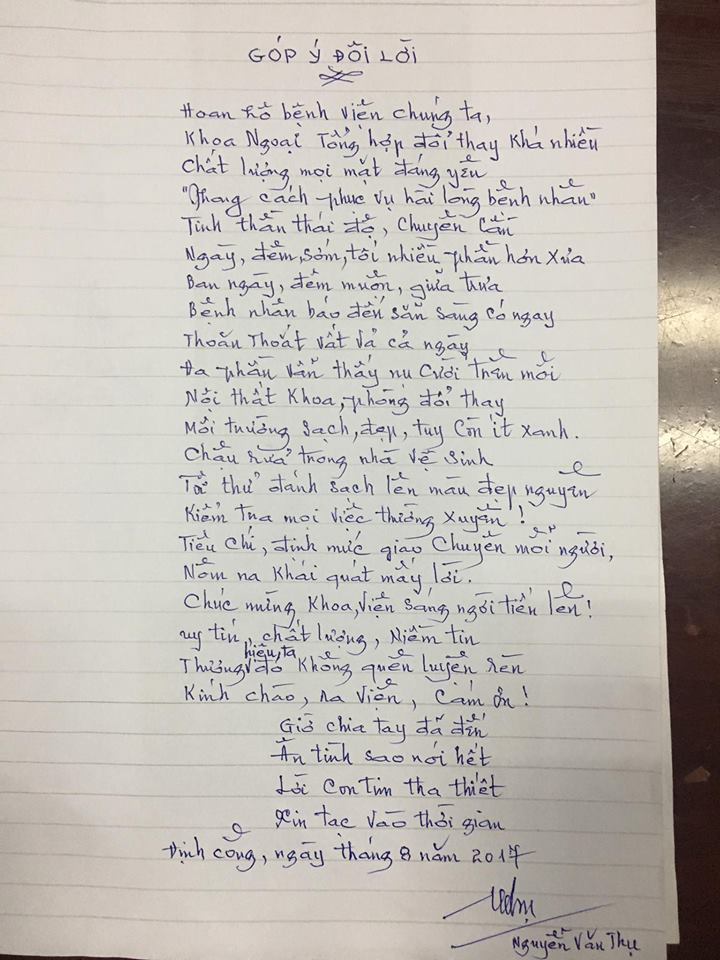 GÓP Ý ĐÔI LỜI
Hoan hô bệnh viện chúng ta,
Khoa Ngoại Tổng hợp đổi thay khá nhiều
Chất lượng mọi mặt đáng yêu
"Phong cách phục vụ hài lòng bệnh nhân"
Tinh thần thái độ, chuyên cần
Ngày, đêm, sớm, tối nhiều phần hơn xưa
Ban ngày, đêm muộn, giữa trưa
Bệnh nhân báo đến sẵn sàng có ngay
Thoăn thoắt vất vả cả ngày
Đa phần vẫn thấy nụ cười trên môi
Nội thất khoa, phòng đổi thay
Môi trường sạch, đẹp, tuy còn ít xanh.
Chậu rửa trong nhà vệ sinh
Tẩy thử đánh sạch lên màu đẹp nguyên
Kiểm tra mọi việc thường xuyên!
Tiêu chí, định mức giao chuyên mỗi người,
Nôm na khái quát mấy lời.
Chúc mừng khoa, viện sáng ngời tiến lên!
uy tín, chất lượng, niềm tin
Thương hiệu ta đó không quên luyện rèn
Kính chào, ra viện, cảm ơn!
Giờ chia tay đã đến
Ân tình sao nói hết
Lời con tim tha thiết
Xin tạc vào thời gian
Định công, ngày tháng 8 năm 2017
Nguyễn Văn Thụ